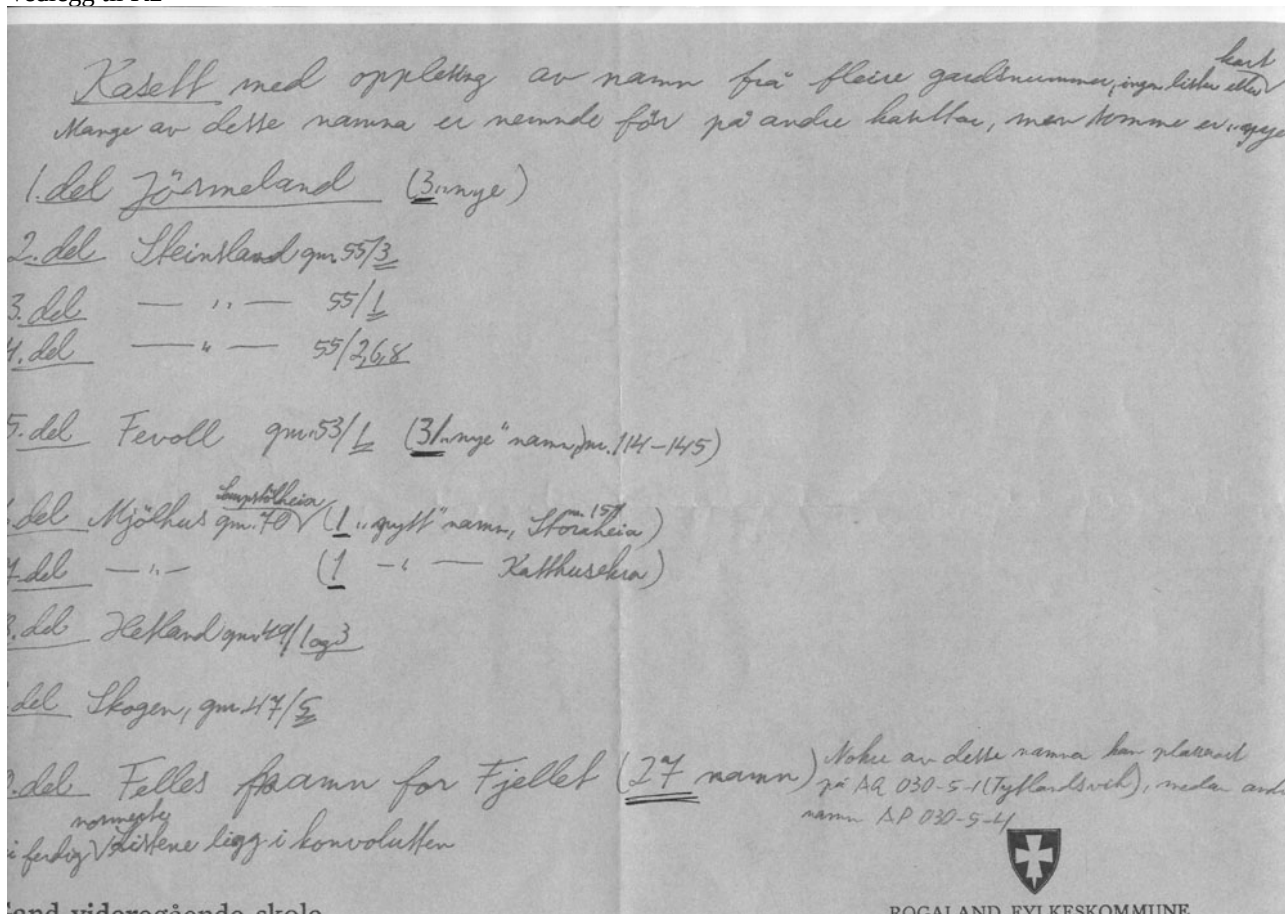 Vedlegg til K2
Kasett med opplesing av namn frå fleire gardsnummer, ingen lister eller kart
Mange av desse namna er nemnde før på andre kasettar, men somme er "nye
1. del Jösmeland (3 "nye)
2. del Steinsland gnr. 55/3
3. del — " — 55/1
4. del — " — 55/2,6,8
5. del Fevoll gnr. 53/1 (31 "nye" namn, nr. 114-145)
del Mjölhus gnr. 70 (1 "nytt" namn, nr. 157 Storaheia)
7. del — " — (1 — " — Katthusekra)
del Hetland gnr 49/1 og 3
del Skogen, gnr. 47/5
del Felles namn for Fjellet (27 namn)
Nokre av desse namna kan plasserast
på AQ 030-5-1 (Tytlandsvik), medan andre
namn AP 030-5-4
i ferdig normerte Listene ligg i konvolutten
Sand vidaregåande skole
ROGALAND FYLKESKOMMUNE